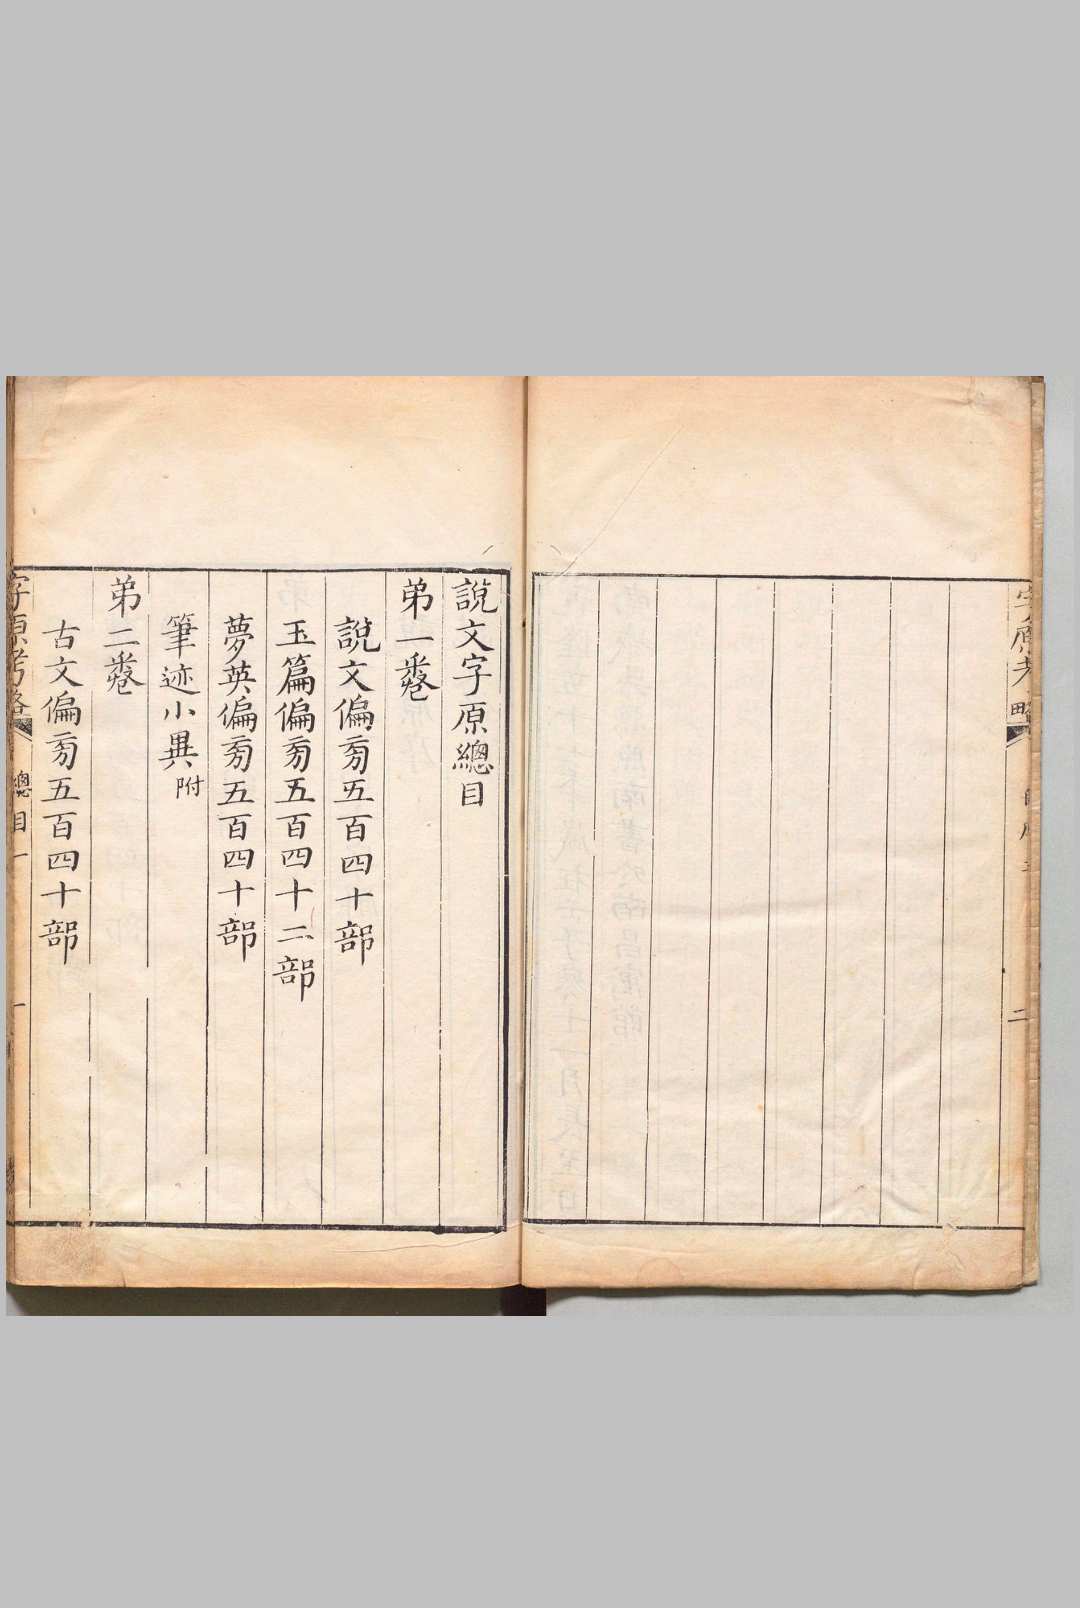 說文字原總目
弟一𢍏
說文偏㫄五百四十部
玉篇偏㫄五百四十二部
夢英偏㫄五百四十部
筆迹小異附
弟二𢍏
古文偏㫄五百四十部
字原考略
總目
一